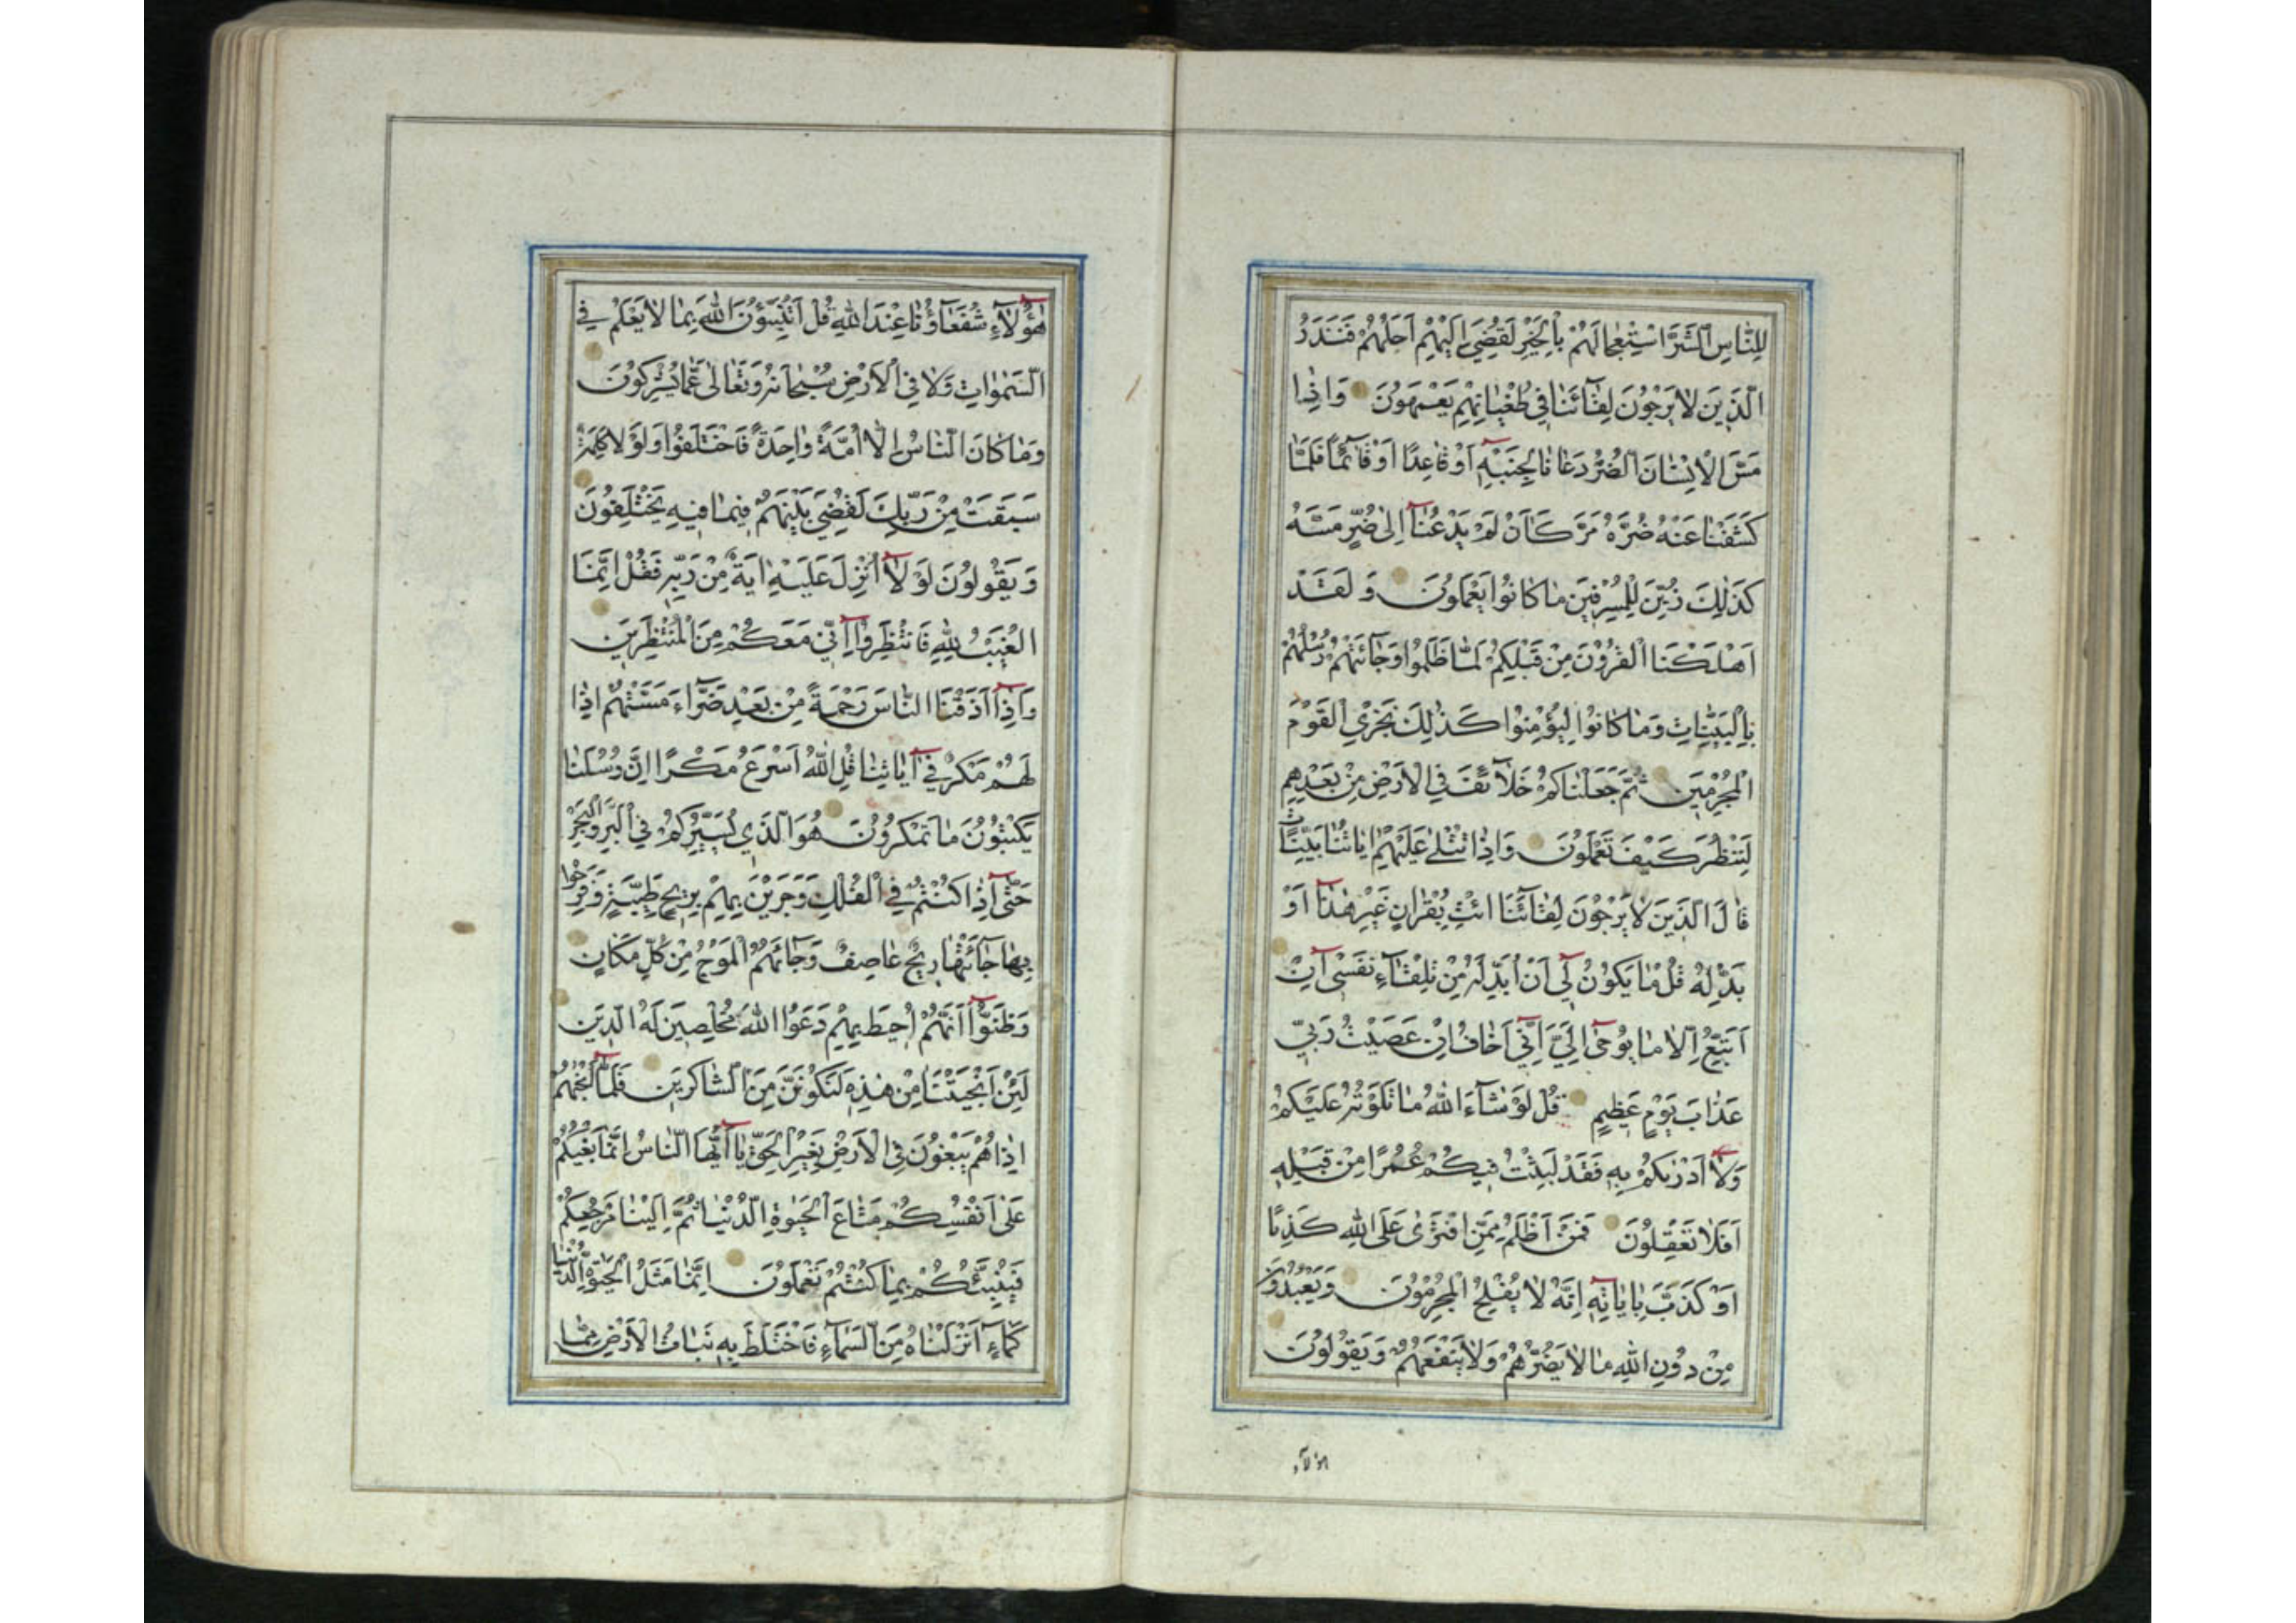 لِلنَّاسِ الشَّرَّ اسْتِعْجَالَهُمْ بِالْخَيْرِ لَقُضِيَ إِلَيْهِمْ أَجَلُهُمْ فَنَذَرُ
الَّذِينَ لَا يَرْجُونَ لِقَآئَنَا فِي طُغْيَانِهِمْ يَعْمَهُونَ وَاِذَا
مَسَّ الْاِنْسَانَ الضُّرُّ دَعَانَا لِجَنْبِهِ اَوْ قَاعِدًا اَوْ قَآئِمًا فَلَمَّا
كَشَفْنَا عَنْهُ ضُرَّهُ مَرَّ كَاَنْ لَمْ يَدْعُنَآ اِلٰى ضُرٍّ مَسَّهُ
كَذٰلِكَ زُيِّنَ لِلْمُسْرِفِينَ مَا كَانُوا يَعْمَلُونَ وَ لَقَدْ
اَهْلَكْنَا الْقُرُونَ مِنْ قَبْلِكُمْ لَمَّا ظَلَمُوا وَجَآئَتْهُمْ رُسُلُهُمْ
بِالْبَيِّنَاتِ وَمَا كَانُوا لِيُؤْمِنُوا كَذٰلِكَ نَجْزِي الْقَوْمَ
الْمُجْرِمِينَ ثُمَّ جَعَلْنَاكُمْ خَلَآئِفَ فِي الْاَرْضِ مِنْ بَعْدِهِمْ
لِنَنْظُرَ كَيْفَ تَعْمَلُونَ وَاِذَا تُتْلٰى عَلَيْهِمْ اٰيَاتُنَا بَيِّنَاتٍ
قَالَ الَّذِينَ لَا يَرْجُونَ لِقَآئَنَا ائْتِ بِقُرْاٰنٍ غَيْرِ هٰذَآ اَوْ
بَدِّلْهُ قُلْ مَا يَكُونُ لِٓي اَنْ اُبَدِّلَهُ مِنْ تِلْقَآءِ نَفْسِيٓ اِنْ
اَتَّبِعُ اِلَّا مَا يُوحٰٓى اِلَيَّ اِنِّٓي اَخَافُ اِنْ عَصَيْتُ رَبِّي
عَذَابَ يَوْمٍ عَظِيمٍ قُلْ لَوْ شَآءَ اللّٰهُ مَا تَلَوْتُهُ عَلَيْكُمْ
وَلَآ اَدْرٰيكُمْ بِهِ فَقَدْ لَبِثْتُ فِيكُمْ عُمُرًا مِنْ قَبْلِهِ
اَفَلَا تَعْقِلُونَ فَمَنْ اَظْلَمُ مِمَّنِ افْتَرٰى عَلَى اللّٰهِ كَذِبًا
اَوْ كَذَّبَ بِاٰيَاتِهِ اِنَّهُ لَا يُفْلِحُ الْمُجْرِمُونَ وَيَعْبُدُونَ
مِنْ دُونِ اللّٰهِ مَا لَا يَضُرُّهُمْ وَلَا يَنْفَعُهُمْ وَيَقُولُونَ
هؤلآء
هٰٓؤُلَآءِ شُفَعَآؤُنَا عِنْدَ اللّٰهِ قُلْ اَتُنَبِّؤُنَ اللّٰهَ بِمَا لَا يَعْلَمُ فِي
السَّمٰوَاتِ وَلَا فِي الْاَرْضِ سُبْحَانَهُ وَتَعَالٰى عَمَّا يُشْرِكُونَ
وَمَا كَانَ النَّاسُ اِلَّا اُمَّةً وَاحِدَةً فَاخْتَلَفُوا وَلَوْلَا كَلِمَةٌ
سَبَقَتْ مِنْ رَبِّكَ لَقُضِيَ بَيْنَهُمْ فِيمَا فِيهِ يَخْتَلِفُونَ
وَ يَقُولُونَ لَوْ لَآ اُنْزِلَ عَلَيْهِ اٰيَةٌ مِنْ رَبِّهِ فَقُلْ اِنَّمَا
الْغَيْبُ لِلّٰهِ فَانْتَظِرُوٓا اِنِّي مَعَكُمْ مِنَ الْمُنْتَظِرِينَ
وَاِذَآ اَذَقْنَا النَّاسَ رَحْمَةً مِنْ بَعْدِ ضَرَّآءَ مَسَّتْهُمْ اِذَا
لَهُمْ مَكْرٌ فِيٓ اٰيَاتِنَا قُلِ اللّٰهُ اَسْرَعُ مَكْرًا اِنَّ رُسُلَنَا
يَكْتُبُونَ مَا تَمْكُرُونَ هُوَ الَّذِي يُسَيِّرُكُمْ فِي الْبَرِّ وَالْبَحْرِ
حَتّٰٓى اِذَا كُنْتُمْ فِي الْفُلْكِ وَجَرَيْنَ بِهِمْ بِرِيحٍ طَيِّبَةٍ وَفَرِحُوا
بِهَا جَآئَتْهَا رِيحٌ عَاصِفٌ وَجَآئَهُمُ الْمَوْجُ مِنْ كُلِّ مَكَانٍ
وَظَنُّوٓا اَنَّهُمْ اُحِيطَ بِهِمْ دَعَوُا اللّٰهَ مُخْلِصِينَ لَهُ الدِّينَ
لَئِنْ اَنْجَيْتَنَا مِنْ هٰذِهِ لَنَكُونَنَّ مِنَ الشَّاكِرِينَ فَلَمَّآ اَنْجٰهُمْ
اِذَا هُمْ يَبْغُونَ فِي الْاَرْضِ بِغَيْرِ الْحَقِّ يَآ اَيُّهَا النَّاسُ اِنَّمَا بَغْيُكُمْ
عَلٰٓى اَنْفُسِكُمْ مَتَاعَ الْحَيٰوةِ الدُّنْيَا ثُمَّ اِلَيْنَا مَرْجِعُكُمْ
فَنُنَبِّئُكُمْ بِمَا كُنْتُمْ تَعْمَلُونَ اِنَّمَا مَثَلُ الْحَيٰوةِ الدُّنْيَا
كَمَآءٍ اَنْزَلْنَاهُ مِنَ السَّمَآءِ فَاخْتَلَطَ بِهِ نَبَاتُ الْاَرْضِ مِمَّا